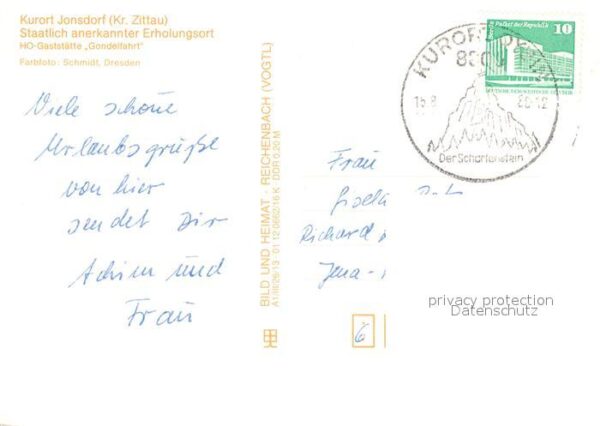 Kurort Jonsdorf (Kr. Zittau)
Staatlich anerkannter Erholungsort
HO-Gaststätte „Gondelfahrt"
Farbfoto: Schmidt, Dresden
Viele schöne
Urlaubsgrüße
von hier
sendet Dir
Achim und
Frau
BILD UND HEIMAT · REICHENBACH (VOGTL)
A1/III/26/13 · 01 12 0662/16 K · DDR 0,20 M
KURORT OYBIN
15.8
Der Scharfenstein
Palast der Republik
10
DEUTSCHE DEMOKRATISCHE REPUBLIK
Frau
Gisela
Richard
Jena-
6
privacy protection
Datenschutz